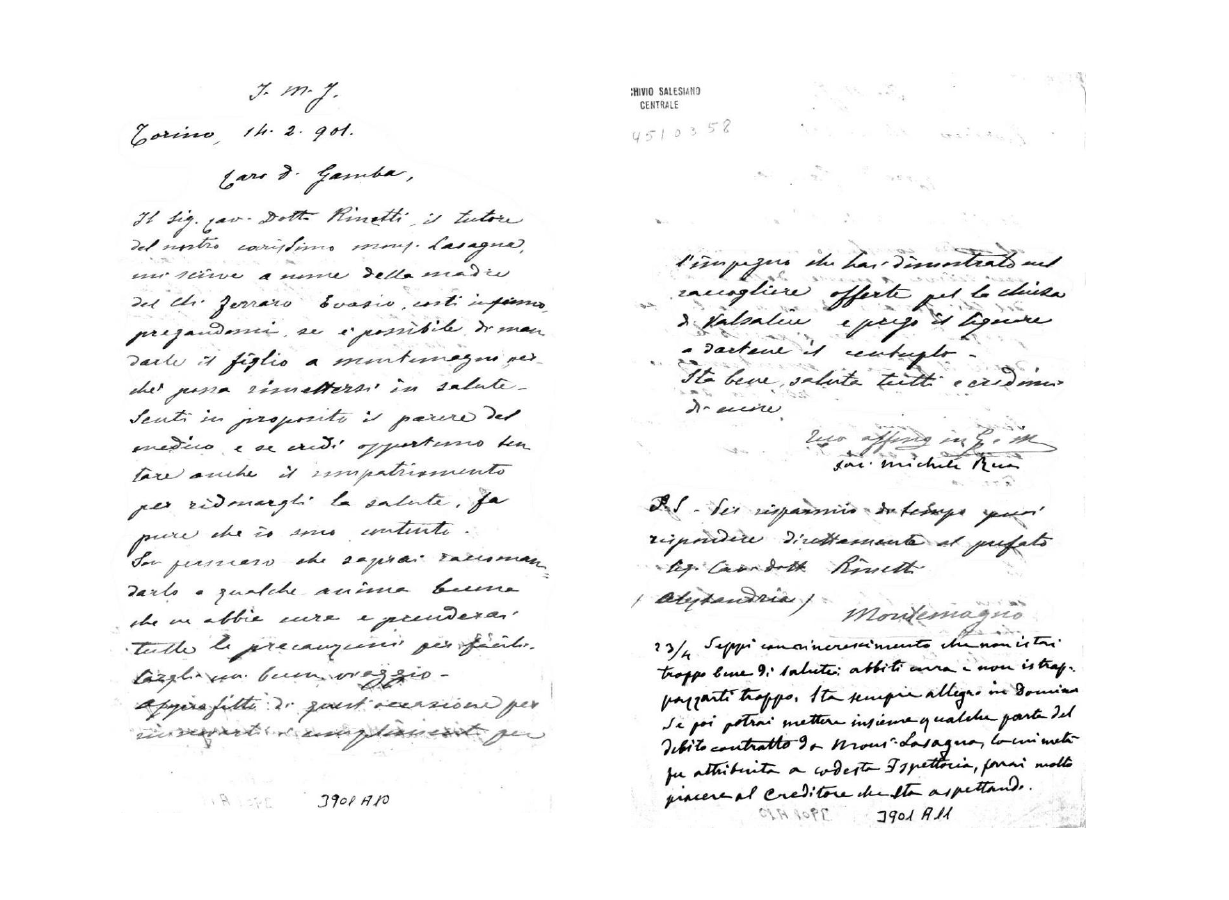 J. M. J.
Torino, 14. 2. 901.
Caro d. Gamba,
Il Sig. Cav. Dott. Rinetti, il tutore
del nostro carissimo mons. Lasagna,
mi scrive a nome della madre
del ch. Ferraro Evasio, costì infermo,
pregandomi, se è possibile, di man
darle il figlio a Montemagno per
chè possa rimettersi in salute.
Senti in proposito il parere del
medico e se credi opportuno ten
tare anche il rimpatriamento
per ridonargli la salute, fa
pure che io sono contento.
Son persuaso che saprai raccoman
darlo a qualche anima buona
che ne abbia cura e prenderai
tutte le precauzioni per facili-
targli un buon viaggio.
Approfitto di quest'occasione per
rinnovarti i complimenti per
3901 A10
HIVIO SALESIANO
CENTRALE
4510358
l'impegno che hai dimostrato nel
raccogliere offerte per la chiesa
di Valsalice e prego il Signore
a dartene il centuplo.
Sta bene, saluta tutti e credimi
di cuore
Tuo affmo in G. e M
Sac. Michele Rua
P.S - Per risparmio di tempo puoi
rispondere direttamente al prefato
Sig. Cav. dott. Rinetti
(Alessandria) Montemagno
23/4 Seppi con rincrescimento che non istai
troppo bene di salute: abbiti cura e non istrap-
pazzarti troppo. Sta sempre allegro in Domino
Se poi potrai mettere insieme qualche parte del
debito contratto da Mons. Lasagna, la cui metà
fu attribuita a codesta Ispettoria, farai molto
piacere al Creditore che sta aspettando.
3901 A11